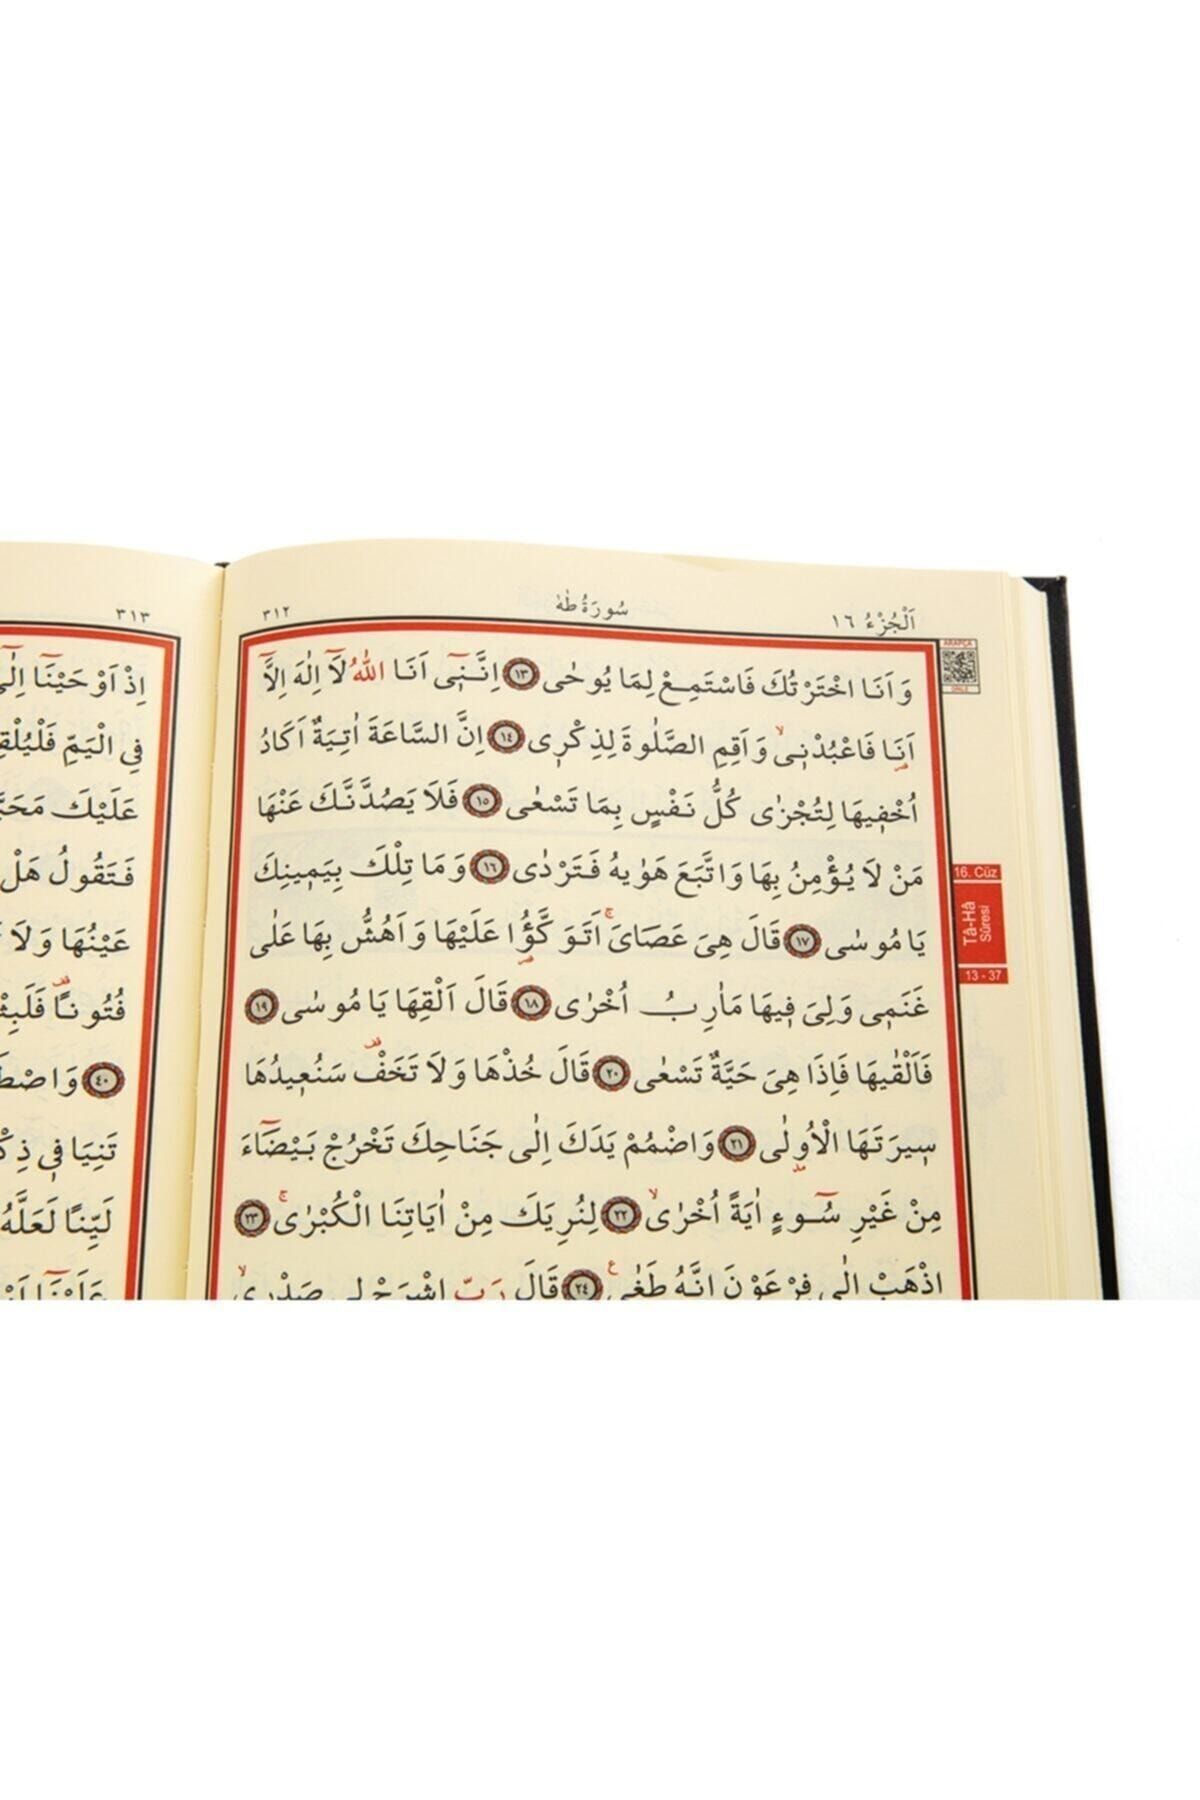 اَلْجُزْءُ ١٦
سُورَةُ طٰهٰ
٣١٢
وَاَنَا اخْتَرْتُكَ فَاسْتَمِعْ لِمَا يُوحٰى ﴿١٣﴾ اِنَّنٖٓى اَنَا اللّٰهُ لَٓا اِلٰهَ اِلَّٓا
اَنَا۬ فَاعْبُدْنٖىۙ وَاَقِمِ الصَّلٰوةَ لِذِكْرٖى ﴿١٤﴾ اِنَّ السَّاعَةَ اٰتِيَةٌ اَكَادُ
اُخْفٖيهَا لِتُجْزٰى كُلُّ نَفْسٍ بِمَا تَسْعٰى ﴿١٥﴾ فَلَا يَصُدَّنَّكَ عَنْهَا
مَنْ لَا يُؤْمِنُ بِهَا وَاتَّبَعَ هَوٰيهُ فَتَرْدٰى ﴿١٦﴾ وَمَا تِلْكَ بِيَمٖينِكَ
يَا مُوسٰى ﴿١٧﴾ قَالَ هِىَ عَصَاىَۚ اَتَوَكَّؤُ۬ا عَلَيْهَا وَاَهُشُّ بِهَا عَلٰى
غَنَمٖى وَلِىَ فٖيهَا مَاٰرِبُ اُخْرٰى ﴿١٨﴾ قَالَ اَلْقِهَا يَا مُوسٰى ﴿١٩﴾
فَاَلْقٰيهَا فَاِذَا هِىَ حَيَّةٌ تَسْعٰى ﴿٢٠﴾ قَالَ خُذْهَا وَلَا تَخَفْ سَنُعٖيدُهَا
سٖيرَتَهَا الْاُو۫لٰى ﴿٢١﴾ وَاضْمُمْ يَدَكَ اِلٰى جَنَاحِكَ تَخْرُجْ بَيْضَٓاءَ
مِنْ غَيْرِ سُٓوءٍ اٰيَةً اُخْرٰىۙ ﴿٢٢﴾ لِنُرِيَكَ مِنْ اٰيَاتِنَا الْكُبْرٰىۚ ﴿٢٣﴾
اِذْهَبْ اِلٰى فِرْعَوْنَ اِنَّهُ طَغٰى ﴿٢٤﴾ قَالَ رَبِّ اشْرَحْ لٖى صَدْرٖىۙ
ARAPÇA
DİNLE
16. Cüz
Tâ-Hâ
Sûresi
13 - 37
٣١٣
اِذْ اَوْحَيْنَٓا اِلٰٓى
فِى الْيَمِّ
عَلَيْكَ
فَتَقُولُ هَلْ
عَيْنُهَا وَلَا
فُتُونًا
﴿٤٠﴾
تَنِيَا فٖى
لَيِّنًا لَعَلَّهُ
عَلَيْنَٓا